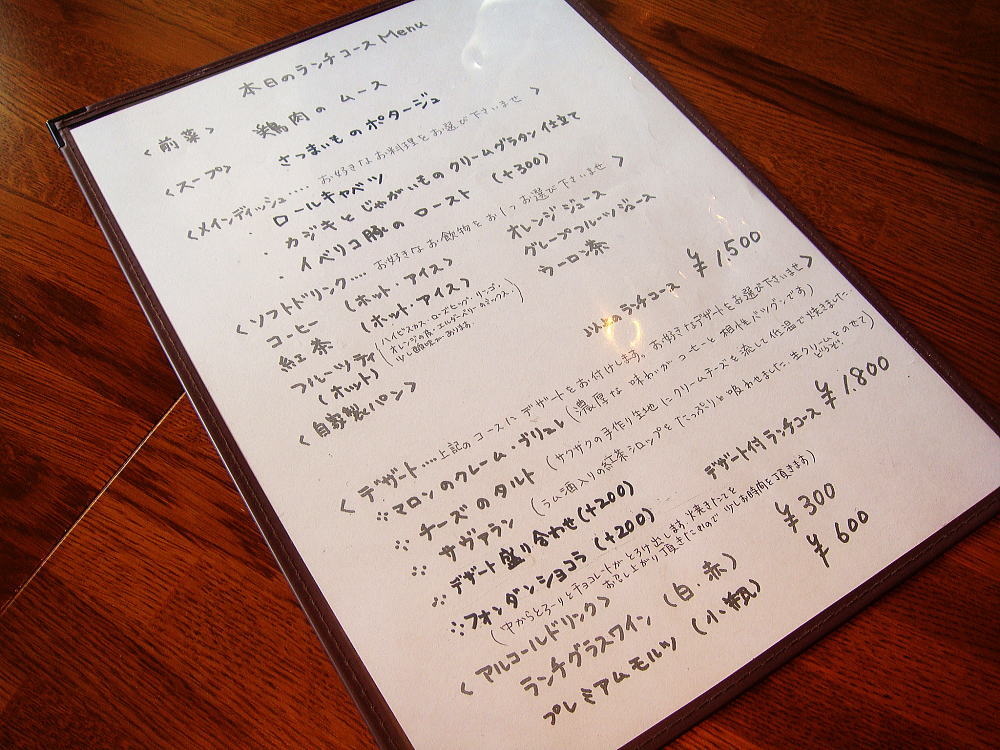 本日のランチコース Menu
<前菜> 鶏肉の ムース
<スープ> さつまいもの ポタージュ
<メインディッシュ・・・・・ お好きなお料理をお選び下さいませ >
・ ロールキャベツ
・ カジキと じゃがいもの クリームグラタン仕立て
・ イベリコ豚の ロースト (+300)
<ソフトドリンク・・・・ お好きなお飲物をお1つお選び下さいませ >
コーヒー (ホット・アイス) オレンジジュース
紅茶 (ホット・アイス) グレープフルーツジュース
フルーツティ (ハイビスカス・ローズヒップ・リンゴ・ ウーロン茶
(ホット) オレンジの皮・エルダーベリーのミックス。
少し酸味があります。)
<自家製パン>
以上のランチコース ¥1,500
<デザート・・・・上記のコースにデザートをお付けします。お好きなデザートをお選び下さいませ>
∴マロンのクレーム・ブリュレ (濃厚な味わいがコーヒーと相性バツグンです)
∴ チーズのタルト (サクサクの手作り生地にクリームチーズを流して低温で焼きました
∴ サヴァラン (ラム酒入りの紅茶シロップをたっぷりと吸わせました。生クリームをのせてどうぞ)
∴ デザート盛り合わせ(+200) デザート付ランチコース ¥1,800
∴フォンダンショコラ (+200)
(中からとろーりとチョコレートがとろけ出します。焼きたてを
お召し上がり頂きたいので 少しお時間を頂きます)
<アルコールドリンク>
ランチグラスワイン (白・赤) ¥300
プレミアムモルツ (小瓶) ¥600